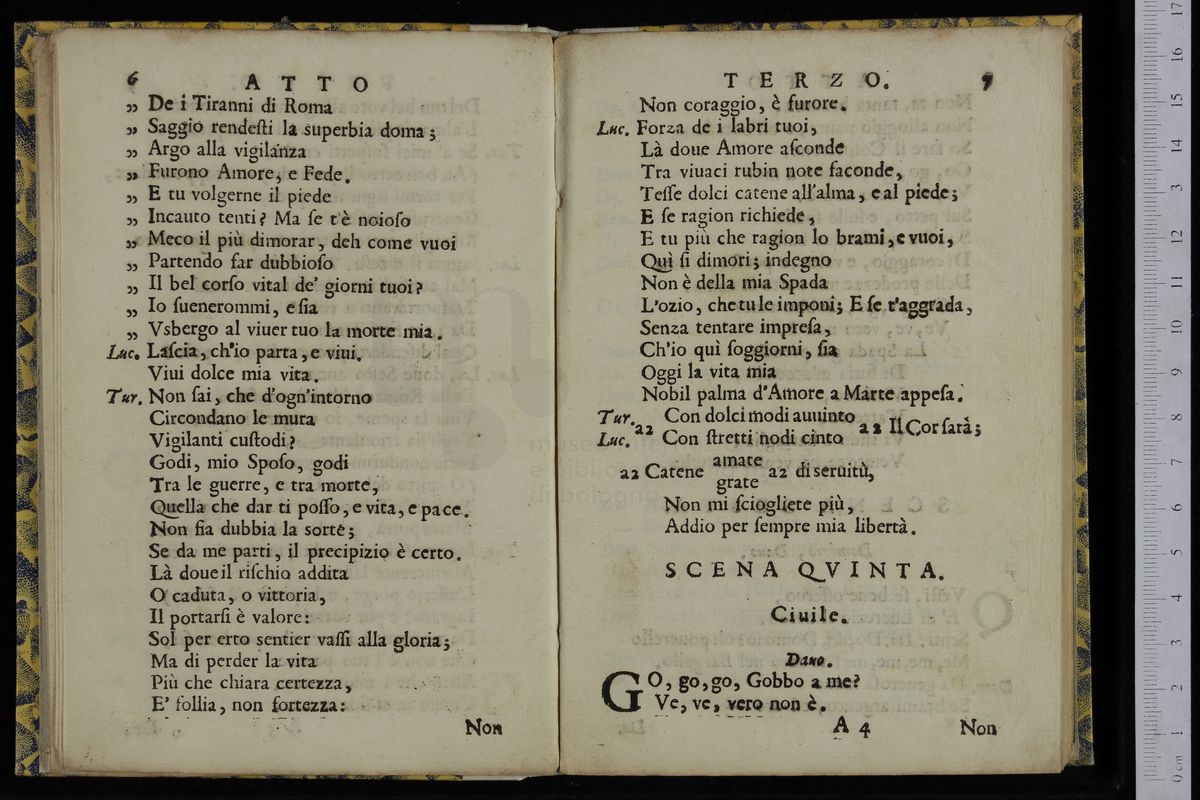 6 ATTO
„ De i Tiranni di Roma
„ Saggio rendeſti la superbia doma;
„ Argo alla vigilanza
„ Furono Amore, e Fede.
„ E tu volgerne il piede
„ Incauto tenti? Ma ſe t'è noioſo
„ Meco il più dimorar, deh come vuoi
„ Partendo far dubbioſo
„ Il bel corſo vital de' giorni tuoi?
„ Io ſuenerommi, e ſia
„ Vsbergo al viuer tuo la morte mia.
Luc. Laſcia, ch'io parta, e viui.
Viui dolce mia vita.
Tur. Non ſai, che d'ogn'intorno
Circondano le mura
Vigilanti cuſtodi?
Godi, mio Spoſo, godi
Tra le guerre, e tra morte,
Quella che dar ti poſſo, e vita, e pace.
Non fia dubbia la sorte;
Se da me parti, il precipizio è certo.
Là doue il riſchio addita
O caduta, o vittoria,
Il portarſi è valore:
Sol per erto sentier vaſſi alla gloria;
Ma di perder la vita
Più che chiara certezza,
E' follia, non fortezza:
Non
TERZO. 7
Non coraggio, è furore.
Luc. Forza de i labri tuoi,
Là doue Amore aſconde
Tra viuaci rubin note faconde,
Teſſe dolci catene all'alma, e al piede;
E ſe ragion richiede,
E tu più che ragion lo brami, e vuoi,
Quì ſi dimori; indegno
Non è della mia Spada
L'ozio, che tu le imponi; E ſe t'aggrada,
Senza tentare impreſa,
Ch'io quì ſoggiorni, ſia
Oggi la vita mia
Nobil palma d'Amore a Marte appeſa.
Tur. Con dolci modi auuinto
a2 a2 Il Cor ſarà;
Luc. Con ſtretti nodi cinto
amate
a2 Catene a2 di seruitù,
grate
Non mi ſciogliete più,
Addio per ſempre mia libertà.
SCENA QVINTA.
Ciuile.
Dauo.
GO, go, go, Gobbo a me?
Ve, ve, vero non è.
A 4 Non
0 cm 1 2 3 4 5 6 7 8 9 10 11 12 13 14 15 16 17